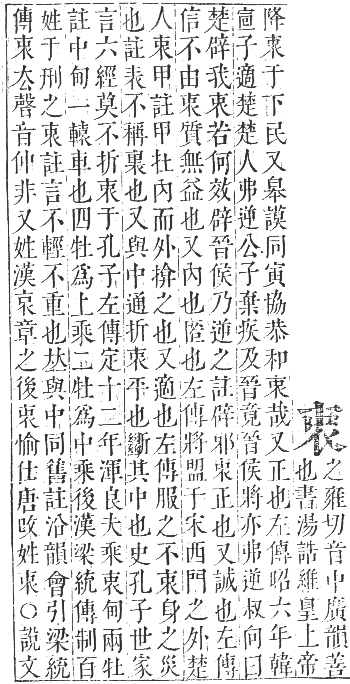 衷
之雍切音中廣韻善
也書湯誥維皇上帝
降衷于下民又皋謨同寅協恭和衷哉又正也左傳昭六年韓
宣子適楚楚人弗逆公子棄疾及晉竟晉侯將亦弗逆叔向曰
楚辟我衷若何效辟晉侯乃逆之註辟邪衷正也又誠也左傳
信不由衷質無益也又內也隂也左傳將盟于宋西門之外楚
人衷甲註甲在內而外揜之也又適也左傳服之不衷身之災
也註表不稱裏也又與中通折衷平也斷其中也史孔子世家
言六經莫不折衷于孔子左傳定十二年渾良夫乘衷甸兩牡
註中甸一轅車也四牡爲上乘二牡爲中乘後漢梁統傳制百
姓于刑之衷註言不輕不重也𠀤與中同舊註沿韻會引梁統
傳衷去聲音仲非又姓漢哀章之後衷愉仕唐改姓衷○說文